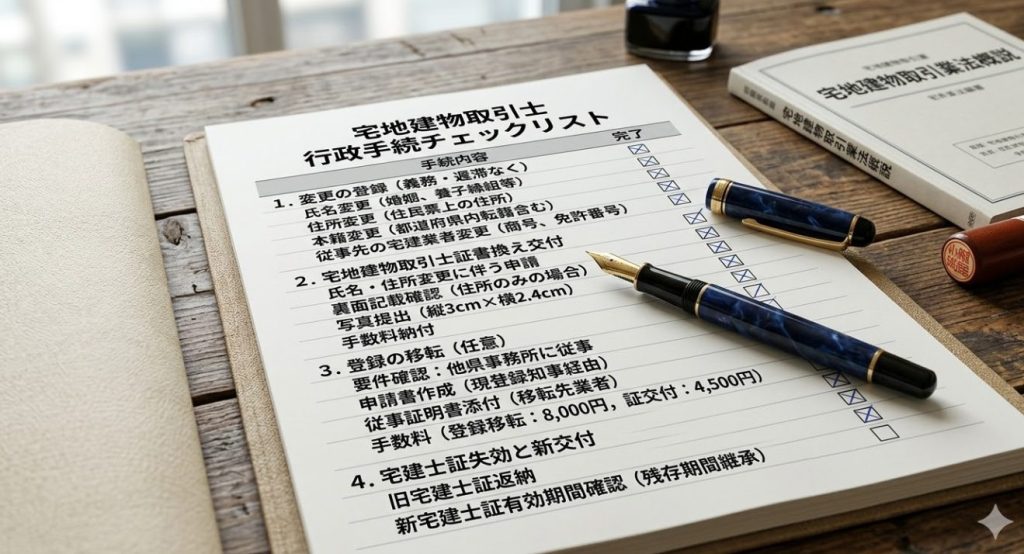 宅地建物取引士
行政手続チェックリスト
手続内容 完了
1. 変更の登録（義務・遅滞なく）
氏名変更（婚姻、養子縁組等）
住所変更（住民票上の住所）
本籍変更（都道府県内転籍含む）
従事先の宅建業者変更（商号、免許番号）
2. 宅地建物取引士証書換え交付
氏名・住所変更に伴う申請
裏面記載確認（住所のみの場合）
写真提出（縦3cm×横2.4cm）
手数料納付
3. 登録の移転（任意）
要件確認：他県事務所に従事
申請書作成（現登録知事経由）
従事証明書添付（移転先業者）
手数料（登録移転：8,000円，証交付：4,500円）
4. 宅建士証失効と新交付
旧宅建士証返納
新宅建士証有効期間確認（残存期間継承）
宅地建物取引業法概説
宅地建物取引業法概説